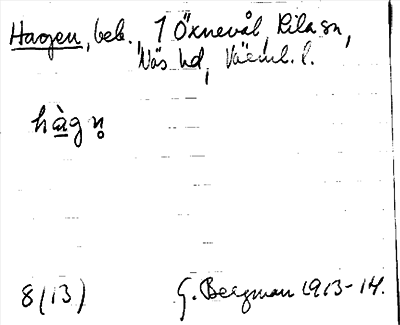 Haagen, beb., 1 Öxnevål, Kila sn,
Näs hd, Värml. l.
hàgn̥
8(13)
G. Bergman 1913-14.